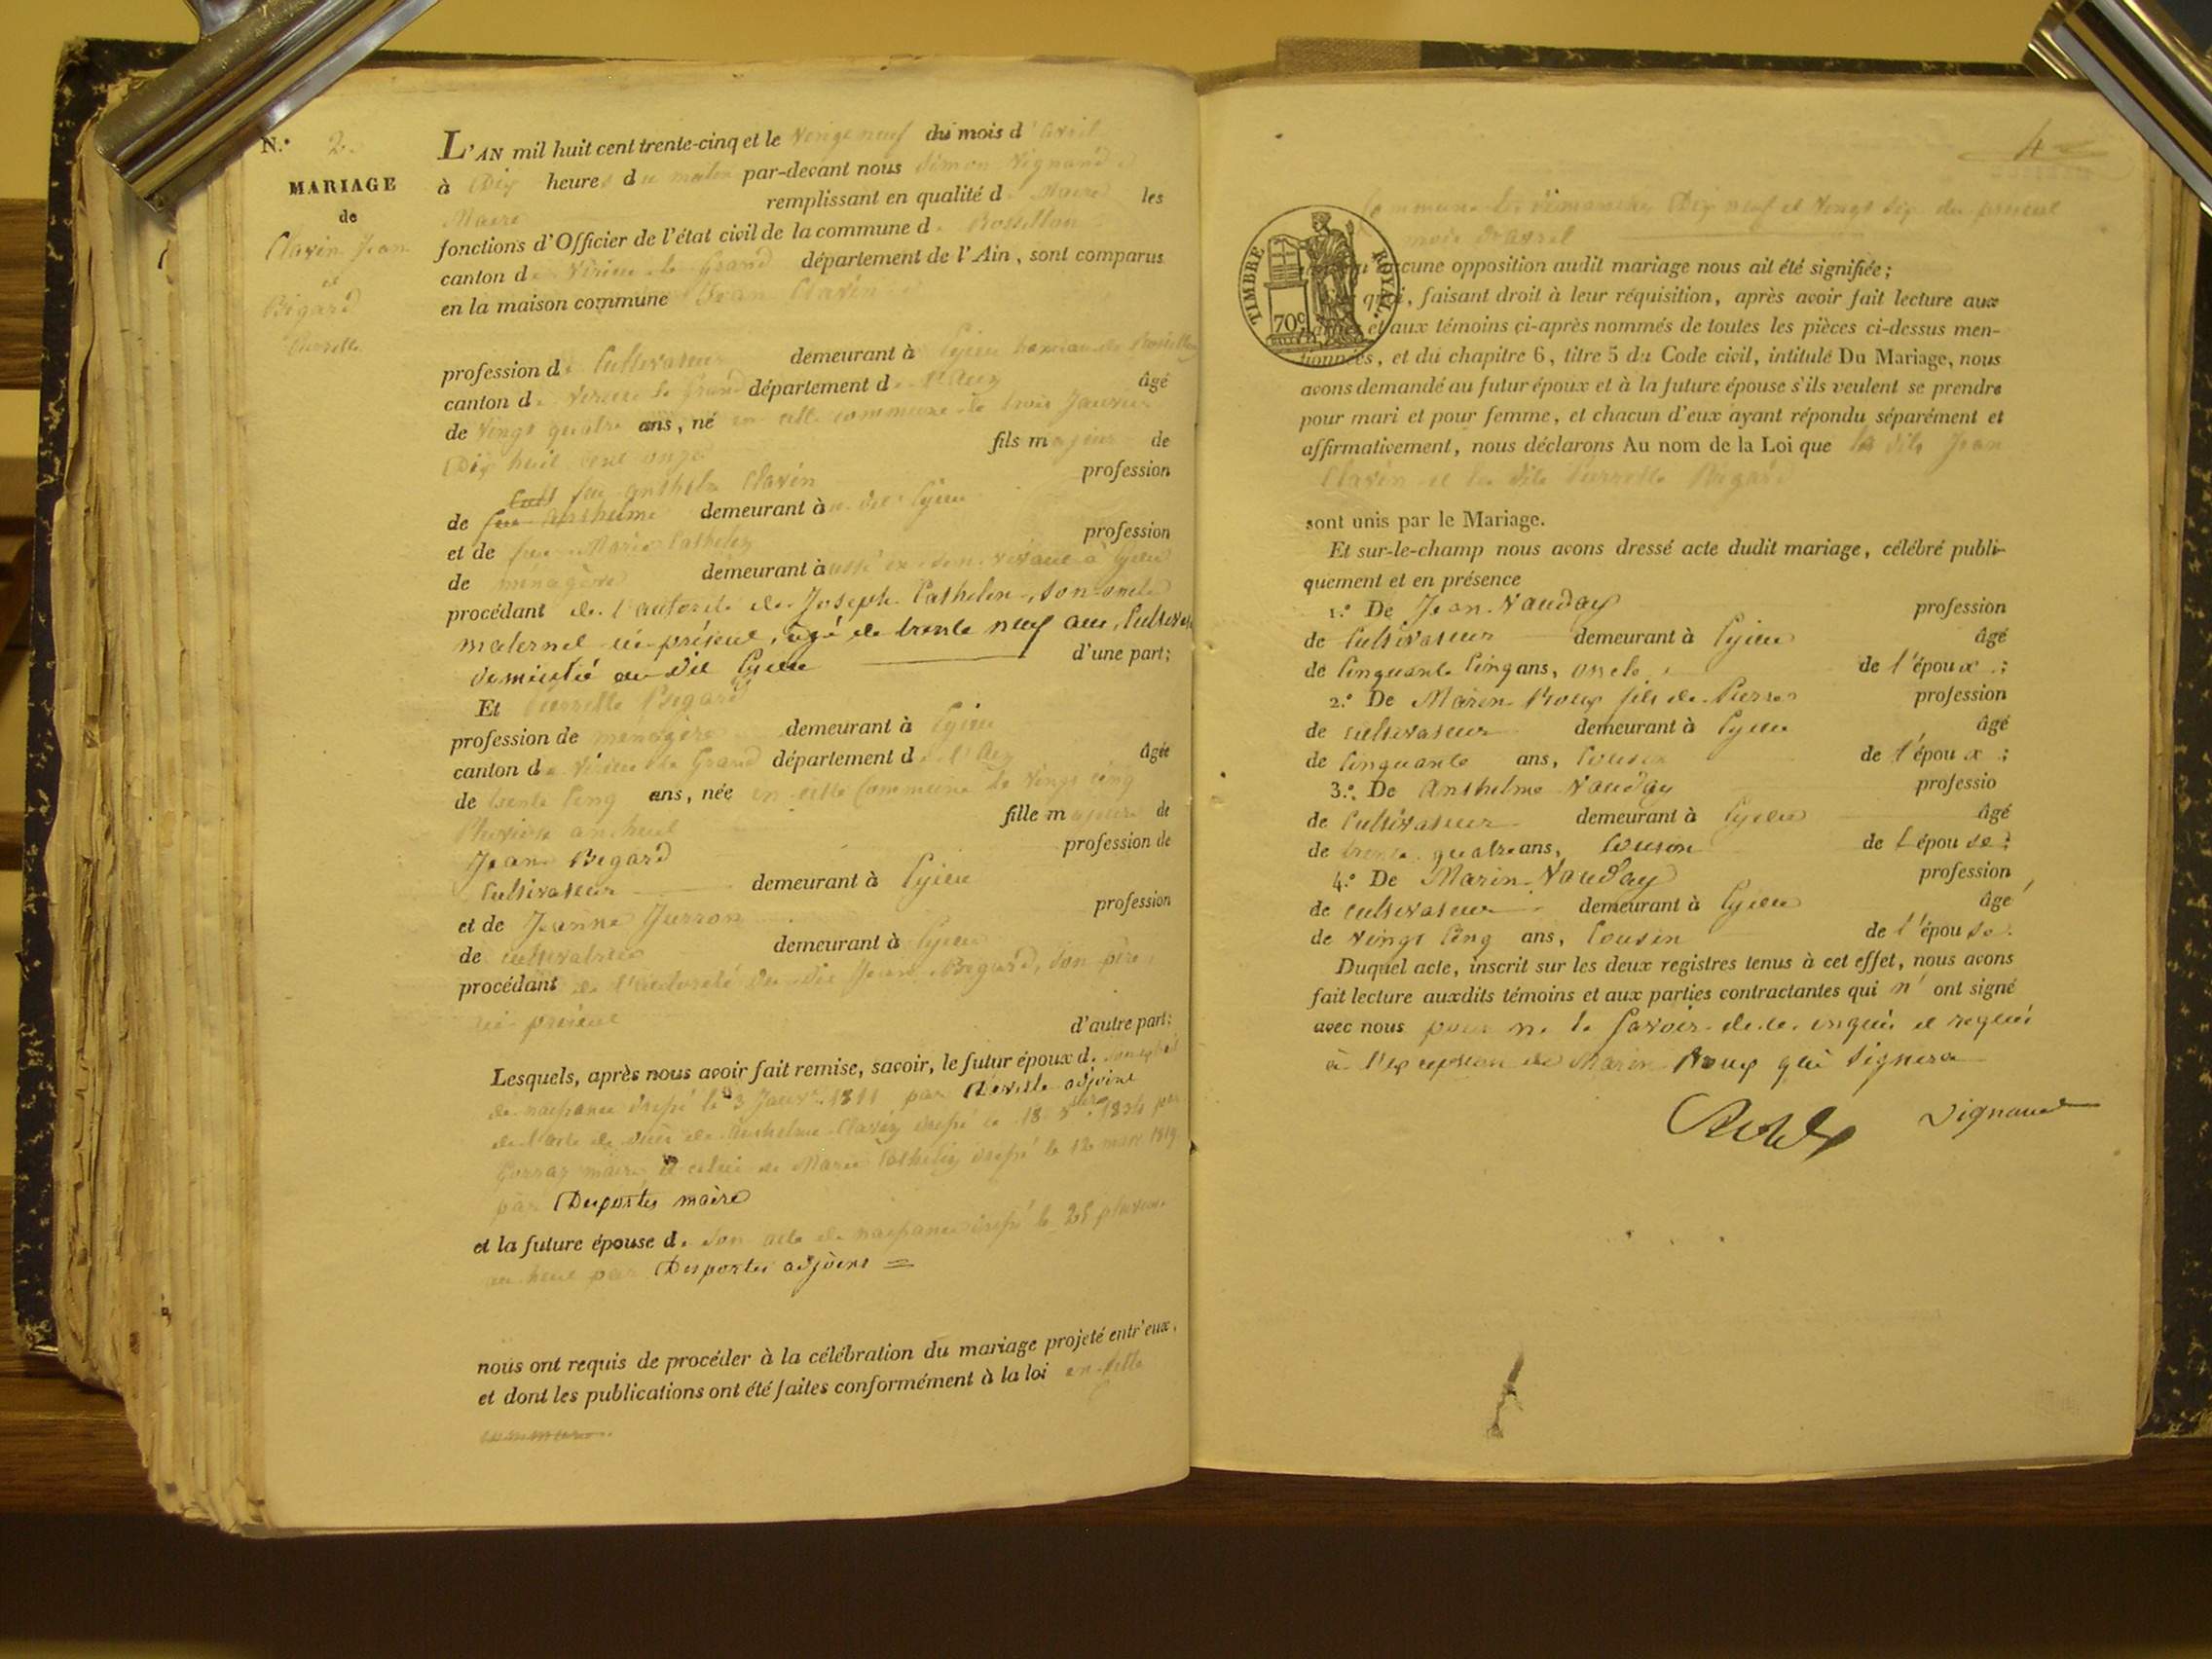 N.° 2.
MARIAGE
de
Clavin Jean
et
Bigard
Pierrette
L'AN mil huit cent trente-cinq et le Vingt neuf du mois d'avril
à Dix heures du matin par-devant nous Simon Vignand
Maire remplissant en qualité de Maire les
fonctions d'Officier de l'état civil de la commune de Rossillon
canton de Virieu le Grand département de l'Ain, sont comparus
en la maison commune Jean Clavin
profession de Cultivateur demeurant à Cyieu hameau de Rossillon
canton de Virieu le Grand département de l'Ain âgé
de Vingt quatre ans, né en cette commune le trois Janvier
Dix huit cent onze fils majeur de
feu Anthelme Clavin profession
de feu Anthelme demeurant à Cyieu
et de feue Marie Cathelin profession
de ménagère demeurant à aussi en son vivant à Cyieu
procédant de l'autorité de Joseph Cathelin, son oncle
maternel ici présent, âgé de trente neuf ans, Cultiva
domicilié au dit Cyieu d'une part;
Et Pierrette Bigard
profession de ménagère demeurant à Cyieu
canton de Virieu le Grand département de l'Ain âgée
de trente Cinq ans, née en cette Commune le Vingt cinq
Pluviose an huit fille majeure de
Jean Bigard profession de
Cultivateur demeurant à Cyieu
et de Jeanne Jurron profession
de cultivatrice demeurant à Cyieu
procédant de l'autorité du dit Jean Bigard, son père,
ici présent
d'autre part;
Lesquels, après nous avoir fait remise, savoir, le futur époux d. son acte
de naissance dressé le 3 Janvr. 1811 par adjoint
de l'acte de décès de Anthelme Clavin dressé le 18 1834 par
maire, et celui de Marie Cathelin dressé le 12 mars 1819
par Desportes maire
et la future épouse d. son acte de naissance dressé le 25 pluviose
an huit par Desportes adjoint =
nous ont requis de procéder à la célébration du mariage projeté entr'eux,
et dont les publications ont été faites conformément à la loi en cette
commune
4
Commune les dimanches Dix neuf et Vingt six du présent
mois d'avril
TIMBRE ROYAL.
70c
cune opposition audit mariage nous ait été signifiée;
quoi, faisant droit à leur réquisition, après avoir fait lecture aux
parties et aux témoins ci-après nommés de toutes les pièces ci-dessus men-
tionnées, et du chapitre 6, titre 5 du Code civil, intitulé Du Mariage, nous
avons demandé au futur époux et à la future épouse s'ils veulent se prendre
pour mari et pour femme, et chacun d'eux ayant répondu séparément et
affirmativement, nous déclarons Au nom de la Loi que le dits Jean
Clavin et la dite Pierrette Bigard
sont unis par le Mariage.
Et sur-le-champ nous avons dressé acte dudit mariage, célébré publi-
quement et en présence
1.° De Jean Vauday profession
de Cultivateur demeurant à Cyieu âgé
de Cinquante Cinq ans, oncle de l'époux;
2.° De Marin Roux fils de Pierre profession
de cultivateur demeurant à Cyieu âgé
de Cinquante ans, Cousin de l'époux;
3.° De Anthelme Vauday professio
de Cultivateur demeurant à Cyieu âgé
de trente quatre ans, Cousin de l'épouse;
4.° De Marin Vauday profession
de cultivateur demeurant à Cyieu âgé
de Vingt Cinq ans, Cousin de l'épouse.
Duquel acte, inscrit sur les deux registres tenus à cet effet, nous avons
fait lecture auxdits témoins et aux parties contractantes qui n' ont signé
avec nous pour ne le savoir de ce enquis et requis
à l'exception de Marin Roux qui signera
Vignand